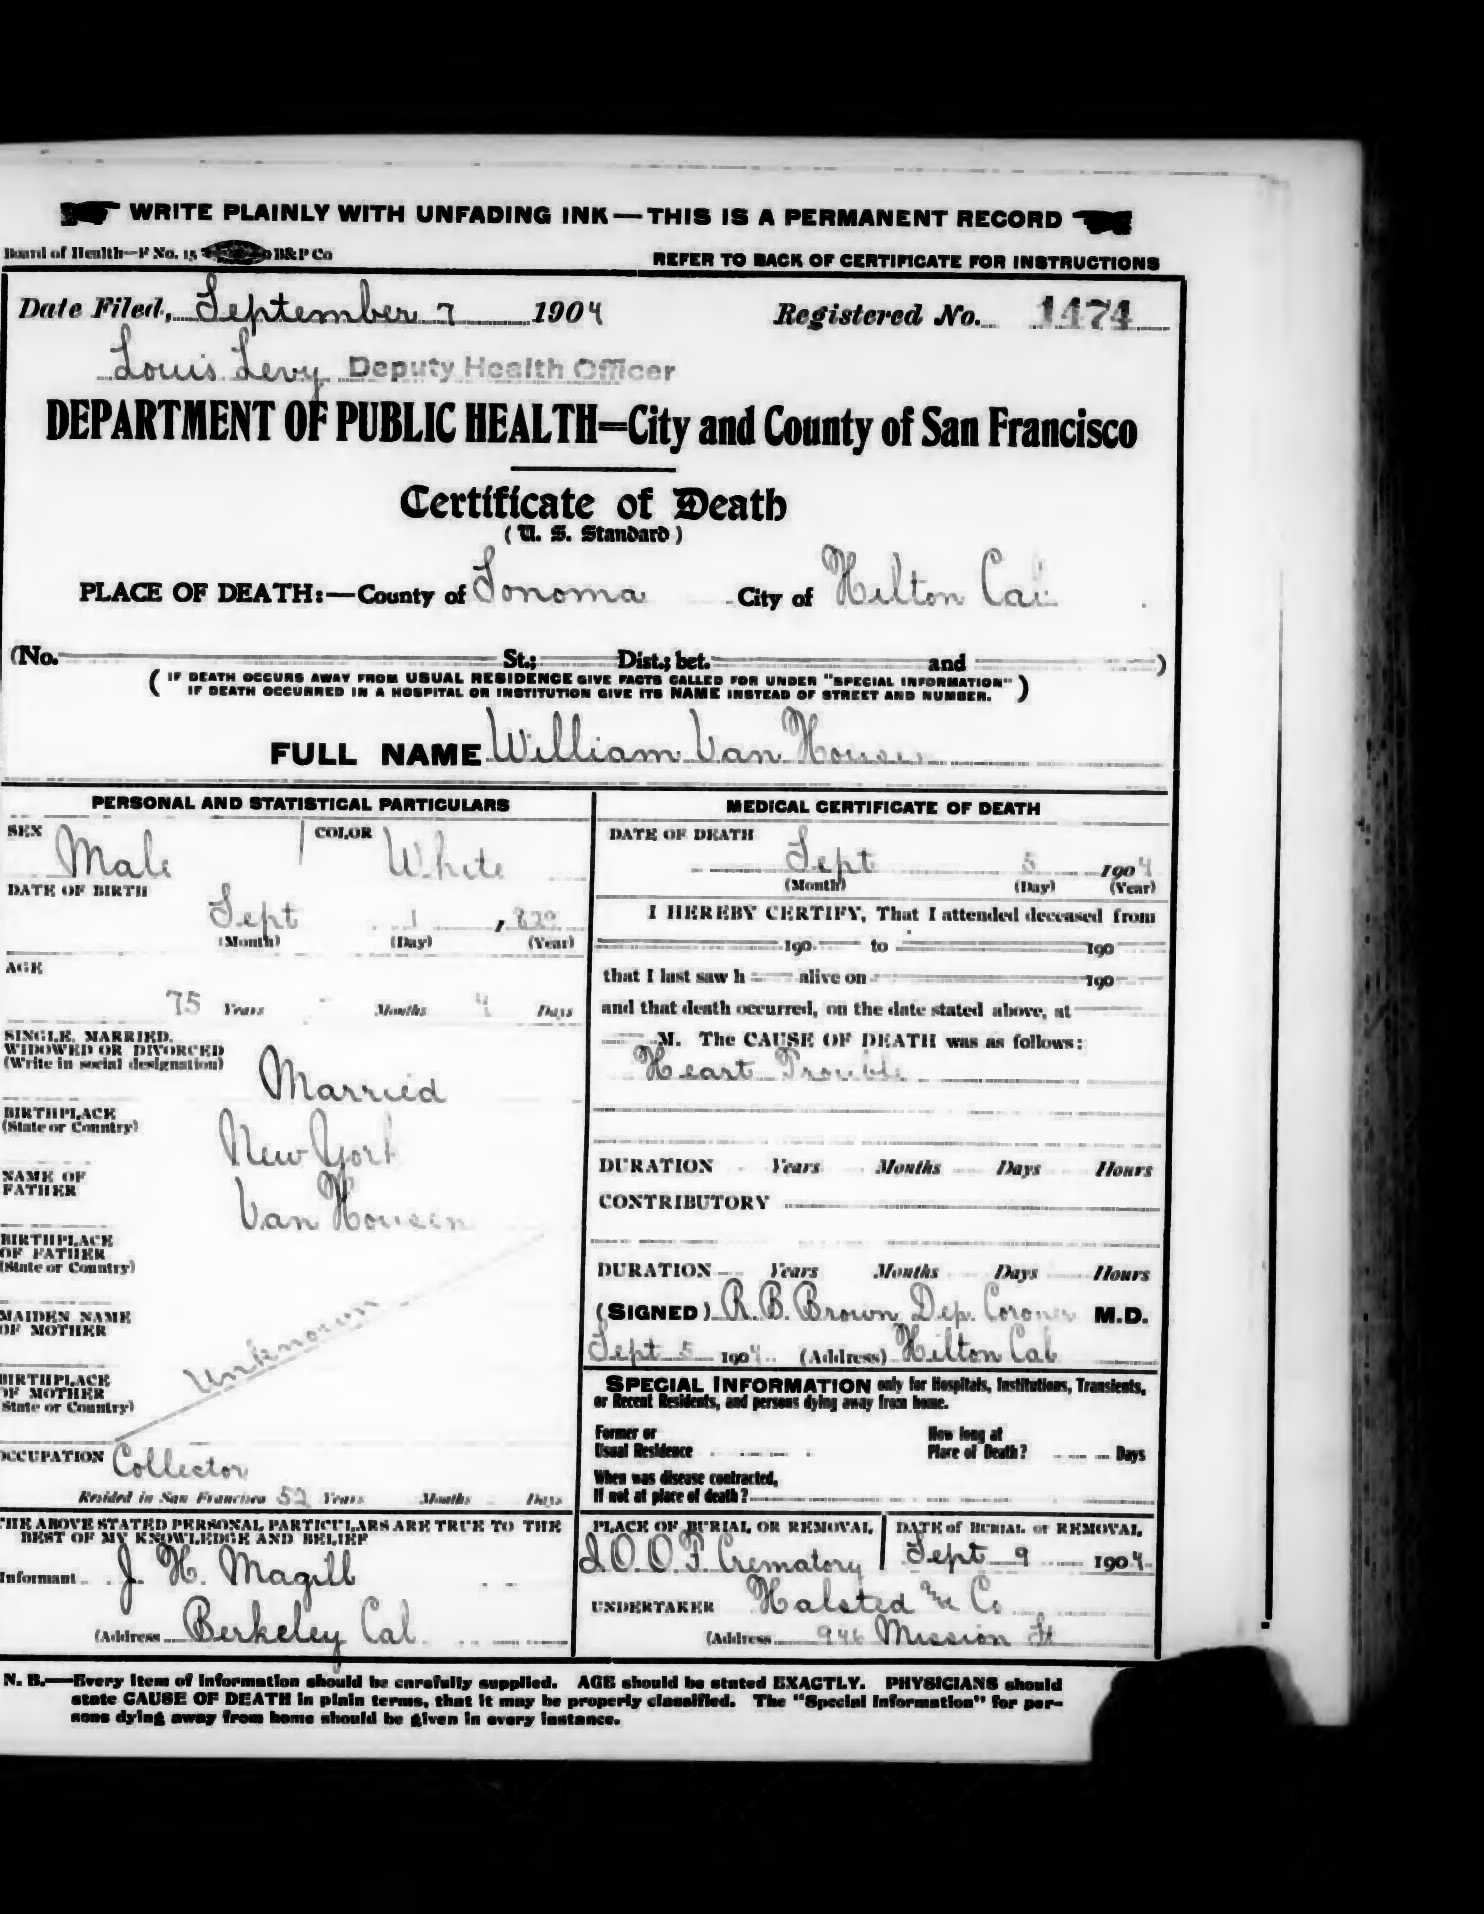 WRITE PLAINLY WITH UNFADING INK—THIS IS A PERMANENT RECORD
Board of Health—F No. 15 B&P Co
REFER TO BACK OF CERTIFICATE FOR INSTRUCTIONS
Date Filed, September 7 1904 Registered No. 1474
Louis Levy Deputy Health Officer
DEPARTMENT OF PUBLIC HEALTH—City and County of San Francisco
Certificate of Death
(U. S. Standard)
PLACE OF DEATH:—County of Sonoma City of Hilton Cal
(No. St.; Dist.; bet. and )
(IF DEATH OCCURS AWAY FROM USUAL RESIDENCE GIVE FACTS CALLED FOR UNDER "SPECIAL INFORMATION"
IF DEATH OCCURRED IN A HOSPITAL OR INSTITUTION GIVE ITS NAME INSTEAD OF STREET AND NUMBER.)
FULL NAME William Van Housen
PERSONAL AND STATISTICAL PARTICULARS
SEX Male COLOR White
DATE OF BIRTH
Sept 1 , 829
(Month) (Day) (Year)
AGE
75 Years - Months 4 Days
SINGLE, MARRIED,
WIDOWED OR DIVORCED
(Write in social designation)
Married
BIRTHPLACE
(State or Country)
New York
NAME OF
FATHER
Van Housen
BIRTHPLACE
OF FATHER
(State or Country)
MAIDEN NAME
OF MOTHER
Unknown
BIRTHPLACE
OF MOTHER
State or Country)
OCCUPATION Collector
Resided in San Francisco 52 Years Months Days
THE ABOVE STATED PERSONAL PARTICULARS ARE TRUE TO THE
BEST OF MY KNOWLEDGE AND BELIEF
Informant J. H. Magill
(Address Berkeley Cal.
MEDICAL CERTIFICATE OF DEATH
DATE OF DEATH
Sept 5 1904
(Month) (Day) (Year)
I HEREBY CERTIFY, That I attended deceased from
190 to 190
that I last saw h alive on 190
and that death occurred, on the date stated above, at
M. The CAUSE OF DEATH was as follows:
Heart Trouble
DURATION Years Months Days Hours
CONTRIBUTORY
DURATION Years Months Days Hours
(SIGNED) R. B. Brown Dep. Coroner M.D.
Sept 5 1904 (Address) Hilton Cal
SPECIAL INFORMATION only for Hospitals, Institutions, Transients,
or Recent Residents, and persons dying away from home.
Former or
Usual Residence
How long at
Place of Death? Days
When was disease contracted,
If not at place of death?
PLACE OF BURIAL OR REMOVAL
I.O.O.F. Crematory
DATE of BURIAL or REMOVAL
Sept 9 1904
UNDERTAKER Halsted & Co
(Address 946 Mission St
N. B.—Every item of information should be carefully supplied. AGE should be stated EXACTLY. PHYSICIANS should
state CAUSE OF DEATH in plain terms, that it may be properly classified. The "Special Information" for per-
sons dying away from home should be given in every instance.